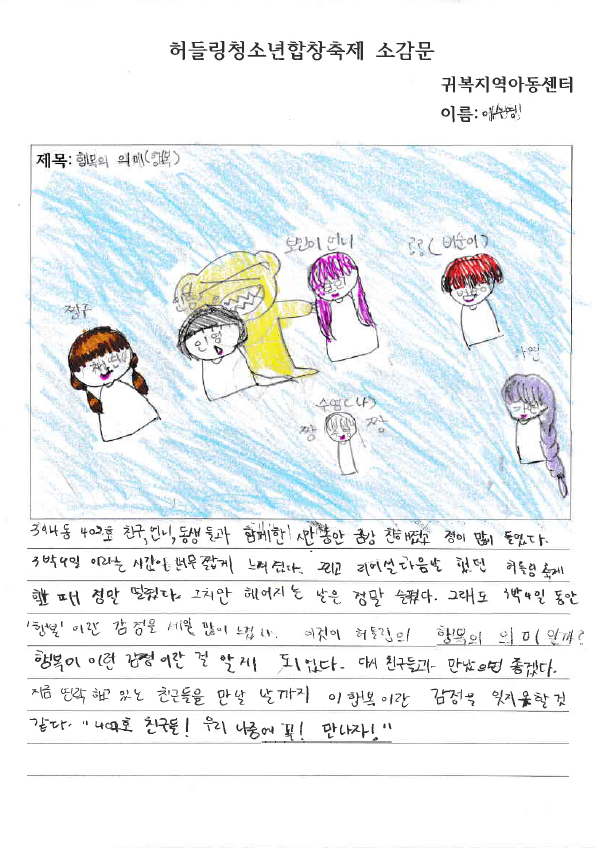 허들링청소년합창축제 소감문
귀복지역아동센터
이름:
제목: 행복의 의미(행복)
보민이 언니
짱구
인영
수염(나)
짱 짱
402호 친구,언니,동생 들과 함께한 시간 동안 정이 많이 들었다.
3박4일 이라는 시간이 너무 짧게 느껴졌다. 그리고 리허설 다음날 했던 허들링 축제
할 때 정말 떨렸다. 그치만 헤어지는 날은 정말 슬펐다. 그래도 3박4일 동안
'행복' 이란 감정을 제일 많이 느꼈다. 이것이 허들링의 행복의 의미 일까?
행복이 이런 감정이란 걸 알게 되었다. 다시 친구들과 만났으면 좋겠다.
지금 연락 하고 있는 친구들을 만날 날까지 이 행복이란 감정을 잊지 못할 것
같다. "402호 친구들! 우리 나중에 꼭! 만나자!"